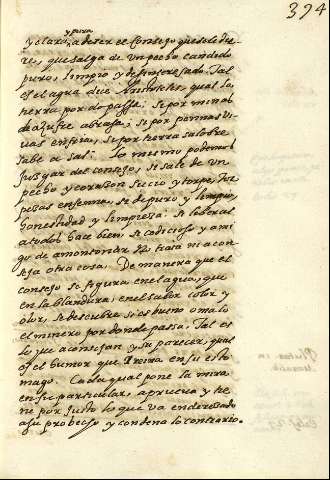 394
y pura
y clara, a de ser el consejo que se le die
re, que salga de un pecho candido
puro, limpio y desinteresado. Tal
es el agua dice Aristoteles, qual la
tierra por do passa; si por minas
de açufre abrasa; si por pennas vi
uas enfria, si por tierra salobre
sabe a sal. Lo mismo podemos
jusgar del consejo, si sale de un
pecho y corason sucio y torpe, tor
pesas ensenna, si de puro y limpio,
honestidad y limpiesa: si liberal
a todos haz bien, si codicioso y ami
go de amontonar no trata ni acon
seja otra cosa. De manera que el
consejo se figura en el agua, que
en la blandura, en el sabor color y
olor, se descubre si es bueno o malo
el minero por donde passa. Tal es
lo que aconsejan y su parecer, qual
es el humor que Reina en su esto
mago. Cada qual pone la mira
en su particular, aprueva y tie
ne por justo lo que va enderessado
a su probecho y condena lo contrario.